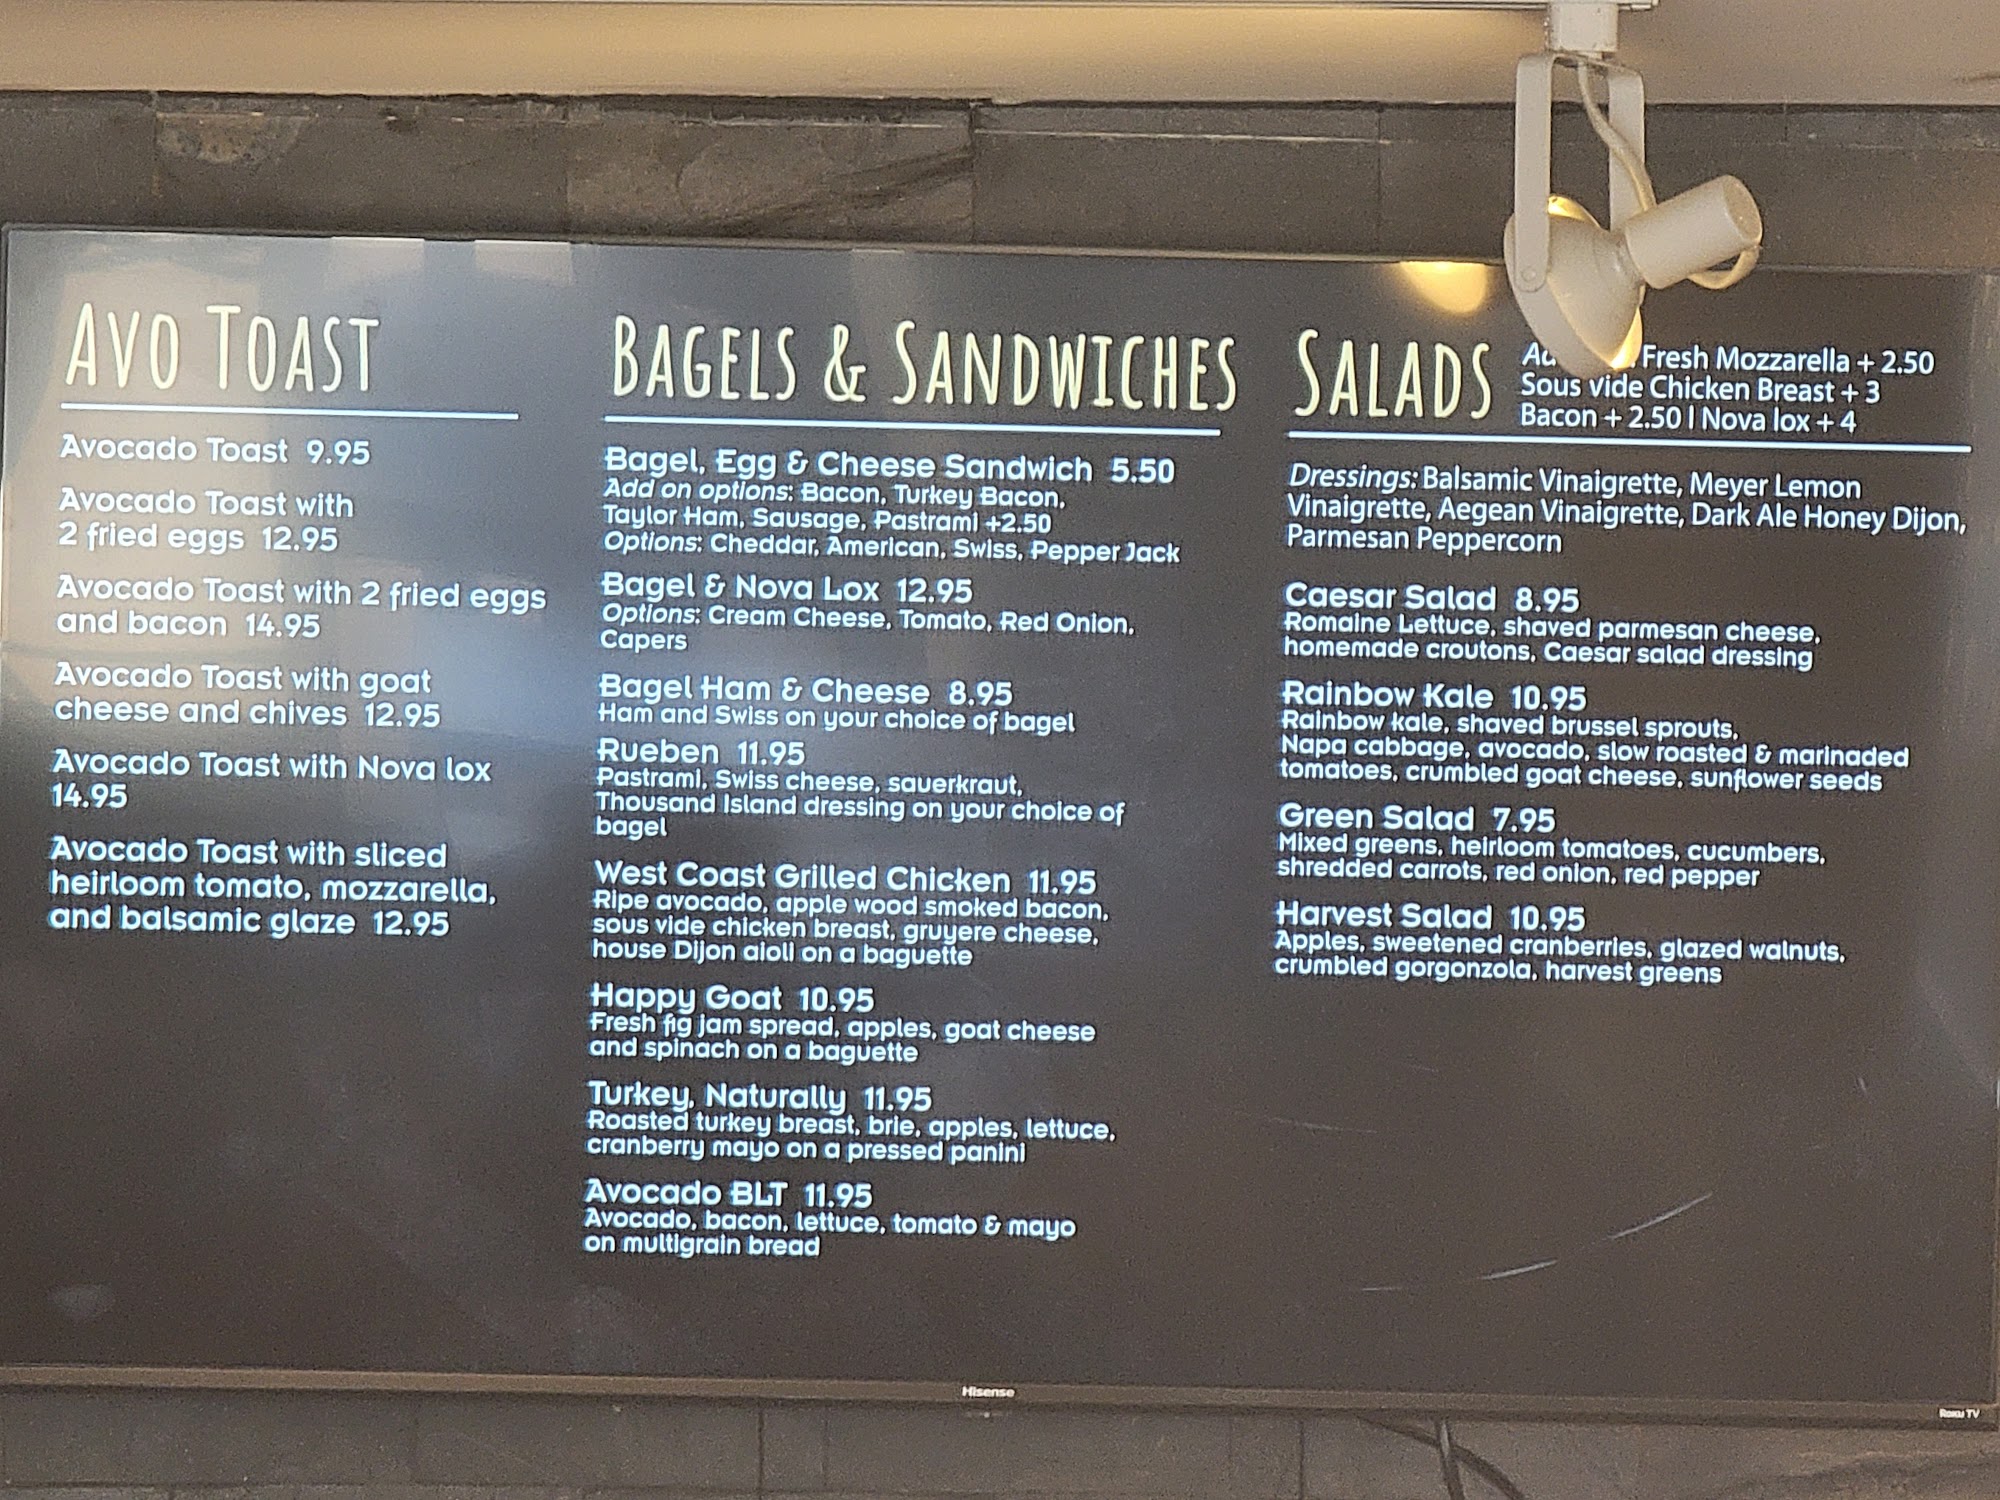 AVO TOAST
Avocado Toast 9.95
Avocado Toast with
2 fried eggs 12.95
Avocado Toast with 2 fried eggs
and bacon 14.95
Avocado Toast with goat
cheese and chives 12.95
Avocado Toast with Nova lox
14.95
Avocado Toast with sliced
heirloom tomato, mozzarella,
and balsamic glaze 12.95
BAGELS & SANDWICHES
Bagel, Egg & Cheese Sandwich 5.50
Add on options: Bacon, Turkey Bacon,
Taylor Ham, Sausage, Pastrami +2.50
Options: Cheddar, American, Swiss, Pepper Jack
Bagel & Nova Lox 12.95
Options: Cream Cheese, Tomato, Red Onion,
Capers
Bagel Ham & Cheese 8.95
Ham and Swiss on your choice of bagel
Rueben 11.95
Pastrami, Swiss cheese, sauerkraut,
Thousand Island dressing on your choice of
bagel
West Coast Grilled Chicken 11.95
Ripe avocado, apple wood smoked bacon,
sous vide chicken breast, gruyere cheese,
house Dijon aioli on a baguette
Happy Goat 10.95
Fresh fig jam spread, apples, goat cheese
and spinach on a baguette
Turkey, Naturally 11.95
Roasted turkey breast, brie, apples, lettuce,
cranberry mayo on a pressed panini
Avocado BLT 11.95
Avocado, bacon, lettuce, tomato & mayo
on multigrain bread
SALADS
Fresh Mozzarella + 2.50
Sous vide Chicken Breast + 3
Bacon + 2.50 | Nova lox + 4
Dressings: Balsamic Vinaigrette, Meyer Lemon
Vinaigrette, Aegean Vinaigrette, Dark Ale Honey Dijon,
Parmesan Peppercorn
Caesar Salad 8.95
Romaine Lettuce, shaved parmesan cheese,
homemade croutons, Caesar salad dressing
Rainbow Kale 10.95
Rainbow kale, shaved brussel sprouts,
Napa cabbage, avocado, slow roasted & marinaded
tomatoes, crumbled goat cheese, sunflower seeds
Green Salad 7.95
Mixed greens, heirloom tomatoes, cucumbers,
shredded carrots, red onion, red pepper
Harvest Salad 10.95
Apples, sweetened cranberries, glazed walnuts,
crumbled gorgonzola, harvest greens
Hisense
Roku TV